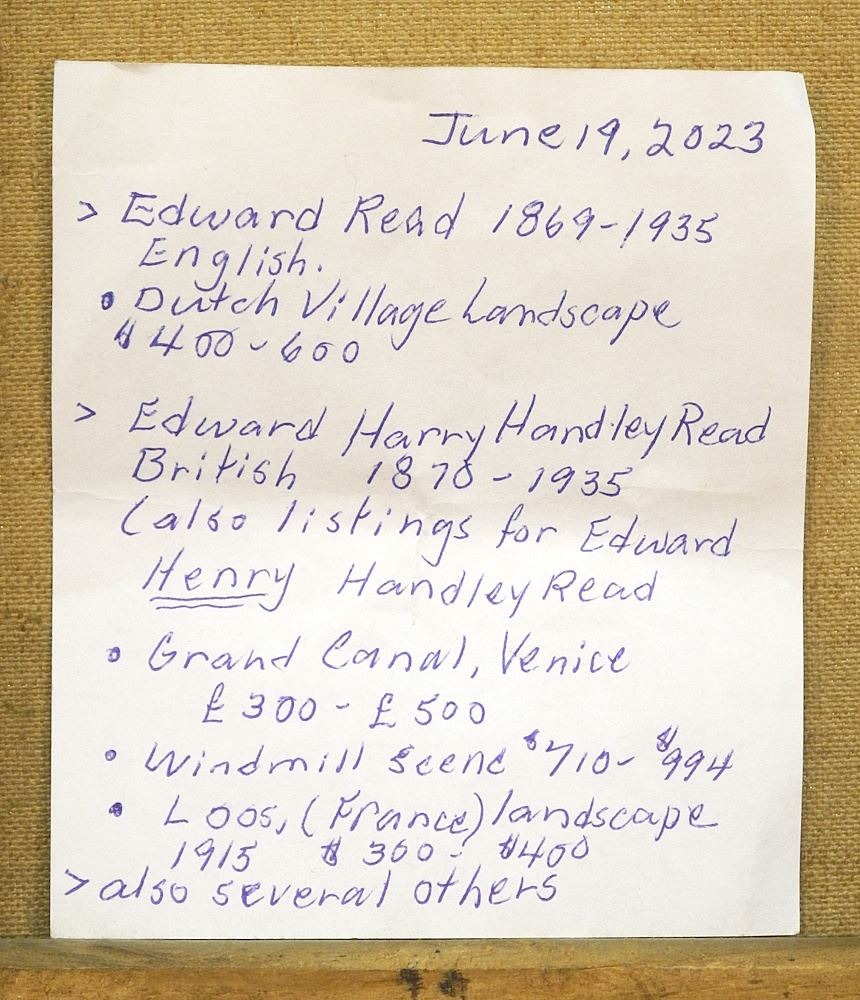 June 19, 2023
> Edward Read 1869-1935
English.
• Dutch Village Landscape
$400-600
> Edward Harry Handley Read
British 1870-1935
(also listings for Edward
Henry Handley Read
• Grand Canal, Venice
£300 - £500
• Windmill Scene $710- $994
• Loos, (France) landscape
1915 $300- $400
> also several others